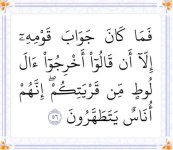 فَمَا كَانَ جَوَابَ قَوْمِهِۦٓ
إِلَّآ أَن قَالُوٓا۟ أَخْرِجُوٓا۟ ءَالَ
لُوطٍ مِّن قَرْيَتِكُمْ ۖ إِنَّهُمْ
أُنَاسٌ يَتَطَهَّرُونَ ٥٦